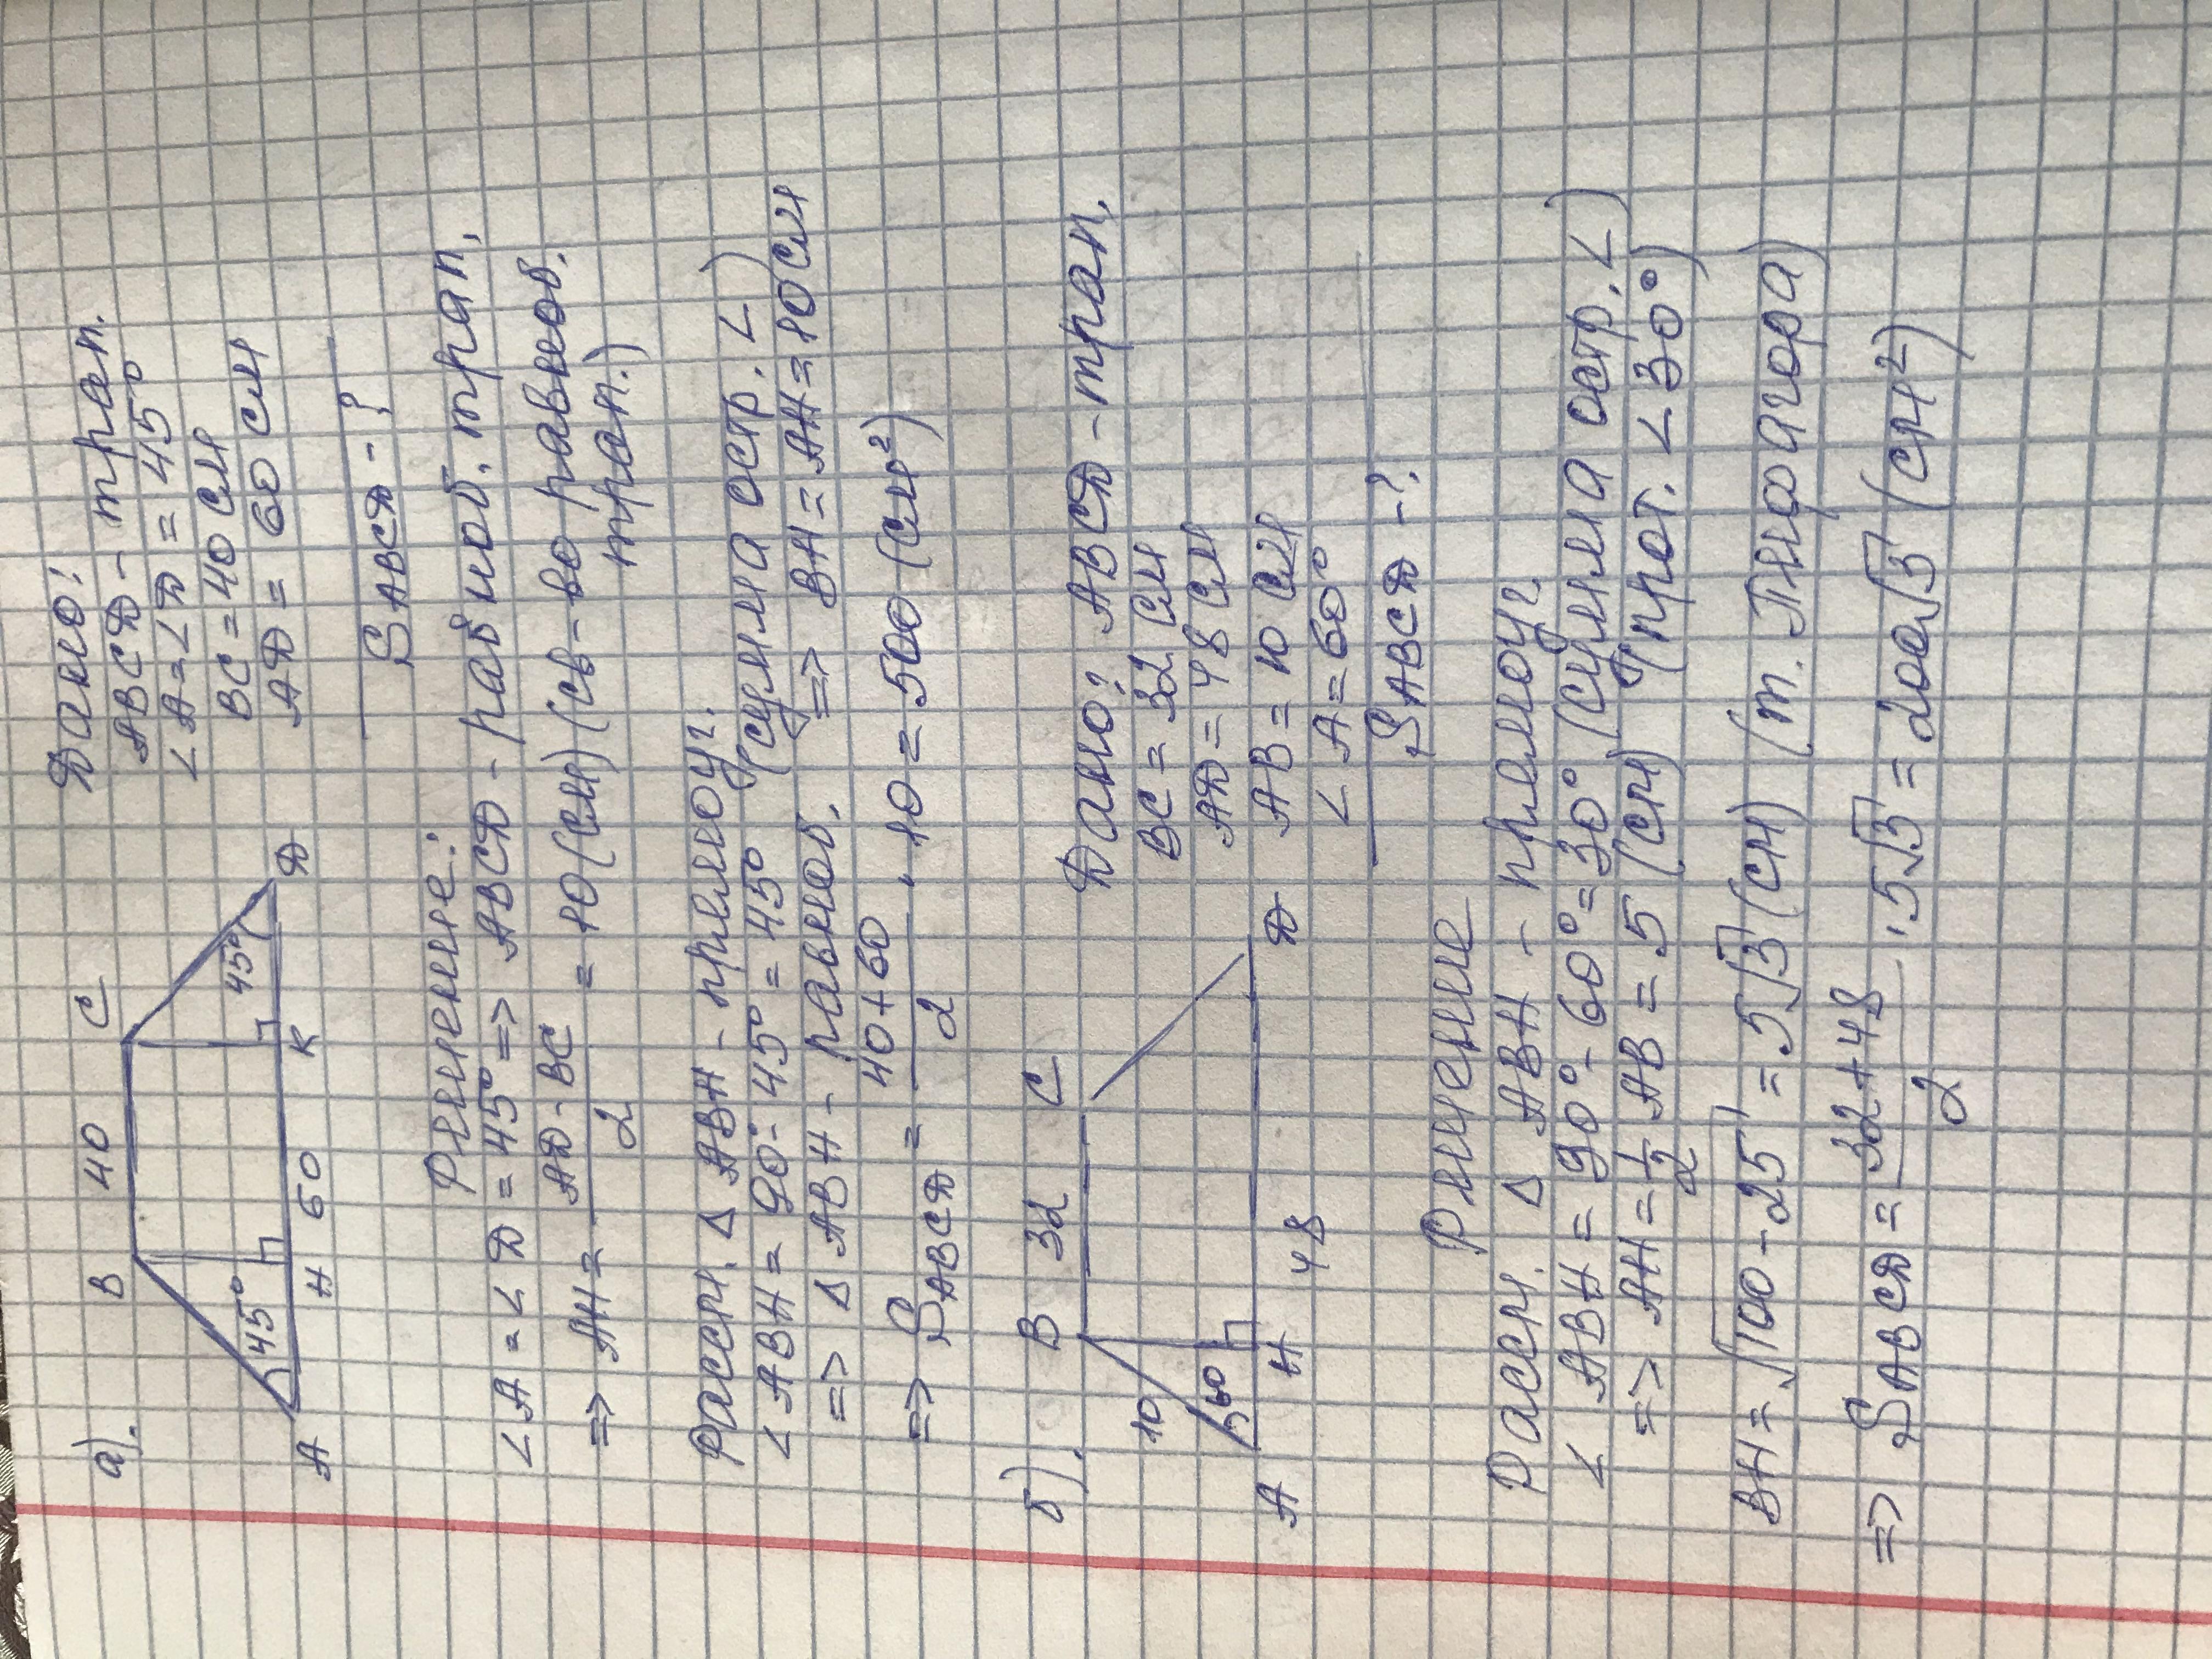 а).
B 40 C
45°
45°
A H 60 K D
Дано:
ABCD - трап.
∠A = ∠D = 45°
BC = 40 см
AD = 60 см
SABCD - ?
Решение:
∠A = ∠D = 45° => ABCD - равноб. трап,
=> AH = AD - BC / 2 = 10 (см) (св-во равноб. трап.)
Рассм. Δ ABH - прямоуг.
∠ ABH = 90° - 45° = 45° (сумма остр. ∠)
=> Δ ABH - равноб. => BH = AH = 10 см
=> SABCD = 40 + 60 / 2 · 10 = 500 (см²)
б).
B 32 C
10
60
A H 48 D
Дано: ABCD - трап,
BC = 32 см
AD = 48 см
AB = 10 см
∠ A = 60°
SABCD - ?.
Ришение
Рассм. Δ ABH - прямоуг
∠ ABH = 90° - 60° = 30° (сумма остр. ∠)
=> AH = 1/2 AB = 5 (см) (прот. ∠ 30°)
BH = √100 - 25 = 5√3 (см) (т. Пифагора)
=> SABCD = 32 + 48 / 2 · 5√3 = 200√3 (см²)